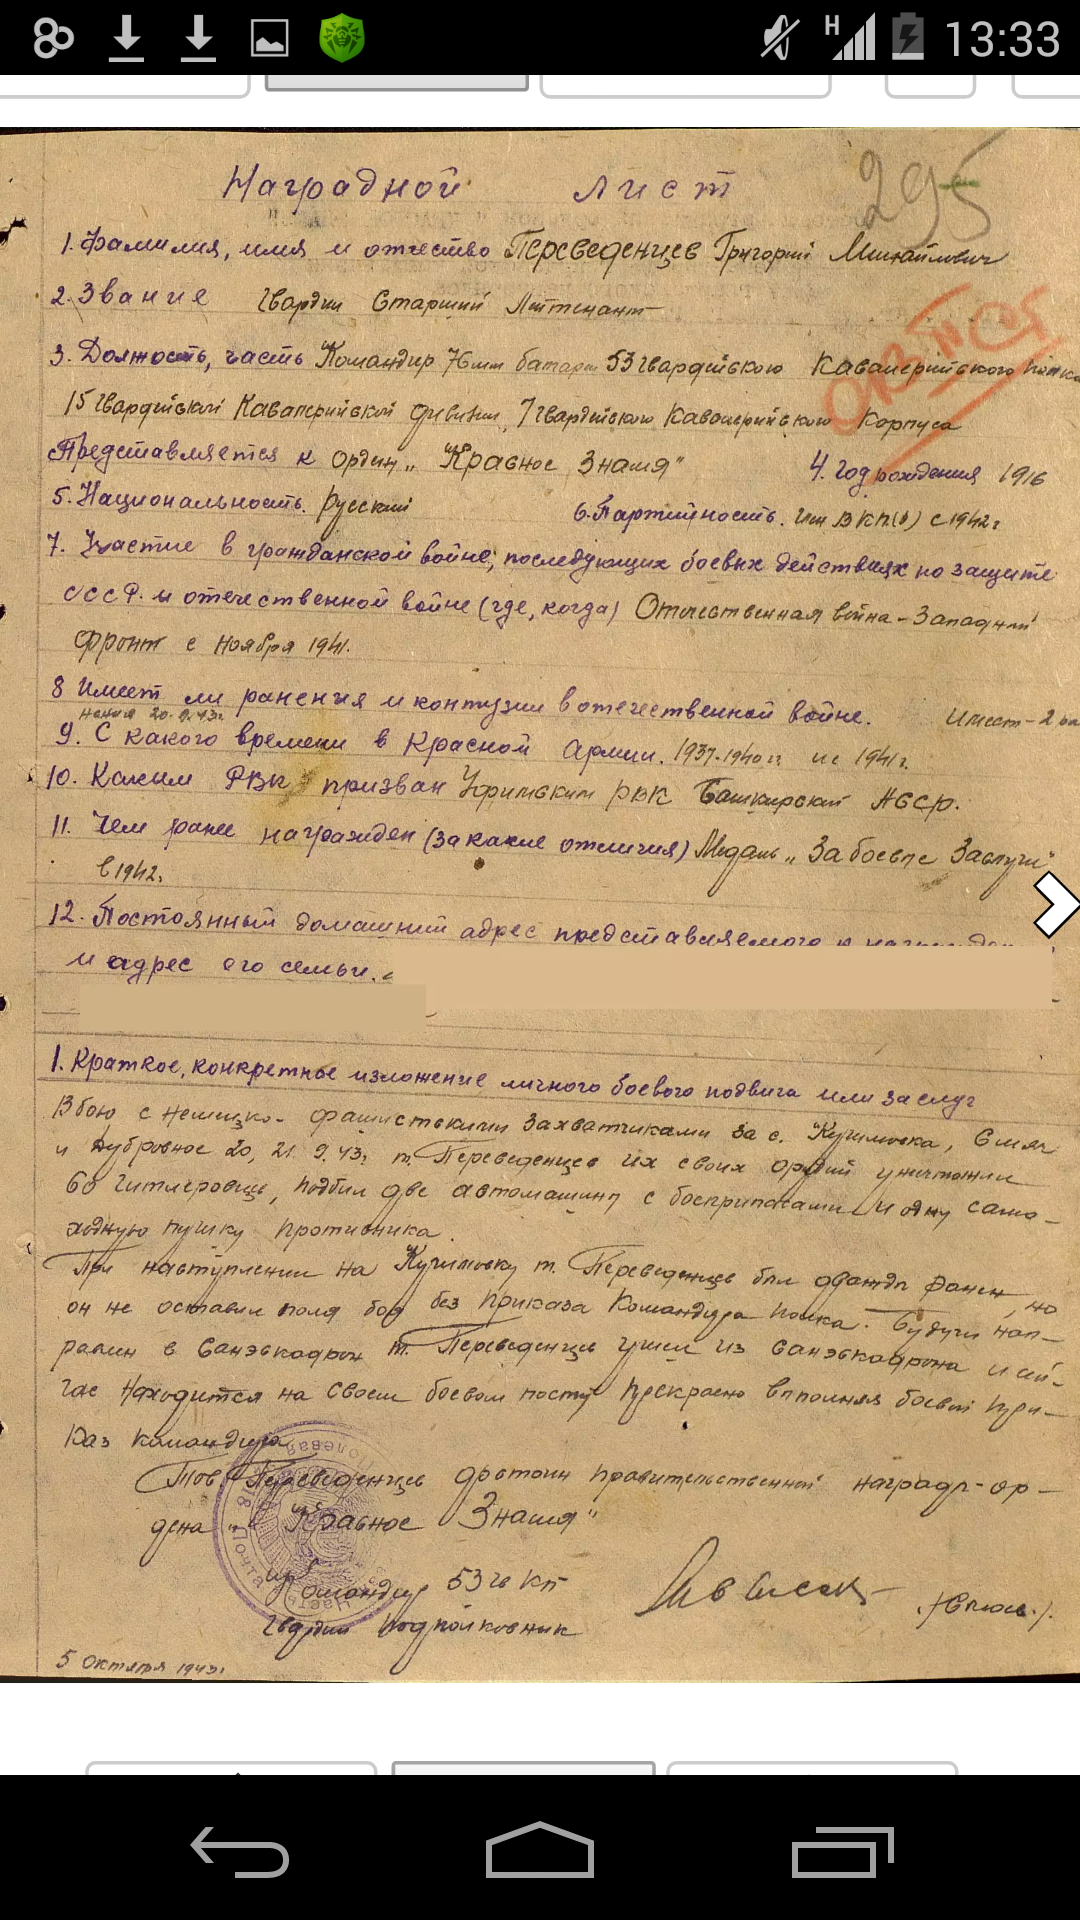 H 13:33
295
Наградной лист
1. Фамилия, имя и отчество Переведенцев Григорий Михайлович
2. Звание Гвардии Старший Лейтенант
3. Должность, часть Командир 76мм батареи 53 Гвардейского Кавалерийского полка
15 Гвардейской Кавалерийской дивизии, 7 Гвардейского Кавалерийского Корпуса
Представляется к Орден „Красное Знамя"
4. Год рождения 1916
5. Национальность. Русский
6. Партийность. Член ВКП(б) с 1942г
7. Участие в гражданской войне, последующих боевых действиях по защите
СССР. и отечественной войне (где, когда) Отечественная война - Западный
фронт с ноября 1941.
8 Имеет ли ранения и контузии в отечественной войне. Имеет - 2 ра
нения 20.9.43г
9. С какого времени в Красной Армии. 1937-1940гг и с 1941г.
10. Каким РВК призван Уфимским РВК Башкирской АССР.
11. Чем ранее награжден (за какие отличия) Медаль „За боевые Заслуги"
в 1942.
12. Постоянный домашний адрес представляемого к
и адрес его семьи.
1. Краткое, конкретное изложение личного боевого подвига или заслуг
В бою с немецко-фашистскими захватчиками за с.
и Дубровное 20, 21.9.43г т. Переведенцев из своих орудий уничтожил
60 Гитлеровцев, подбил две автомашины с боеприпасами и одну само-
ходную пушку противника.
При наступлении на т. Переведенцев был одажды ранен, но
он не оставил поля боя без приказа Командира полка. Будучи нап-
равлен в Санэскадрон т. Переведенцев ушел из санэскадрона и сей-
час находится на своем боевом посту прекрасно выполняя боевой при-
каз командира
Тов Переведенцев достоин правительственной награды-ор-
дена „Красное Знамя"
Командир 53 гв КП
Гвардии подполковник
5 Октября 1943г.